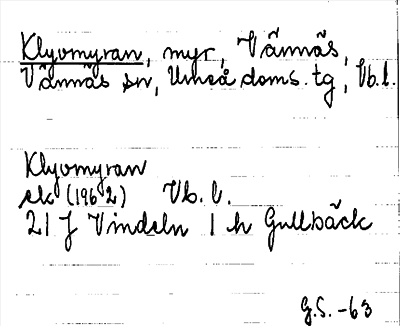 Klyvomyran, myr, Vännäs,
Vännäs sn, Umeå doms. tg, Vb. l.
Klyvomyran
ek (1962) Vb. l.
21 J Vindeln 1 h Gullbäck
G.S. -63